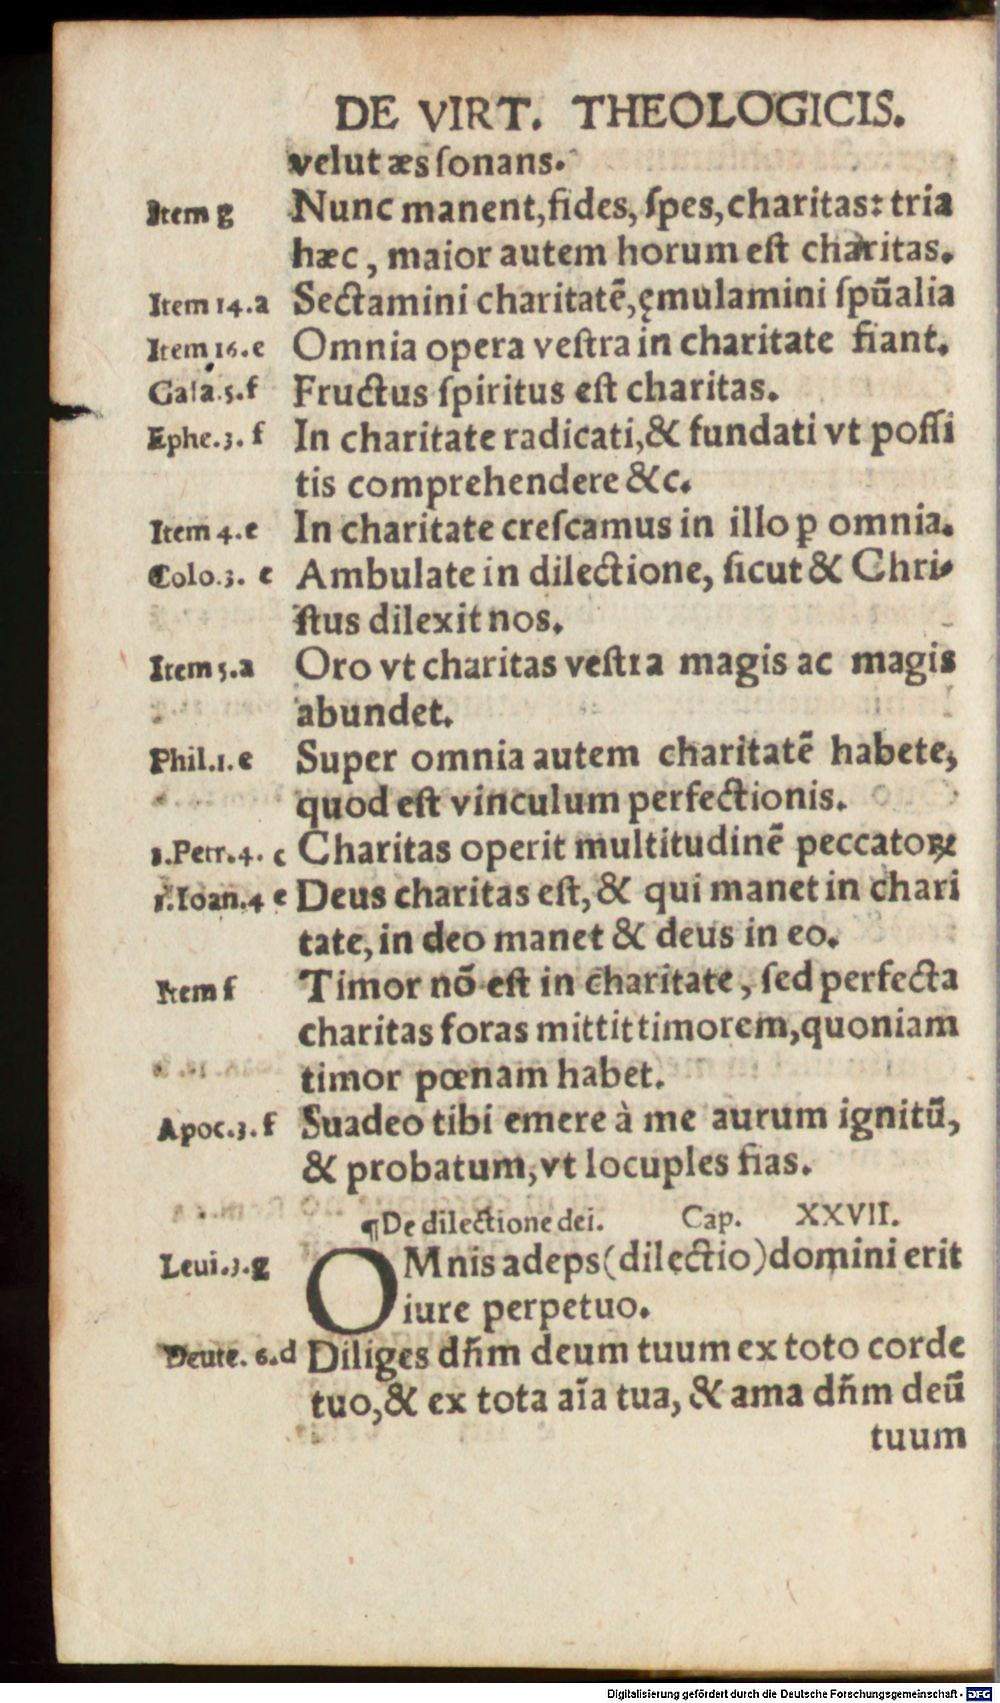 DE VIRT. THEOLOGICIS.
velut æs ſonans.
Item g Nunc manent, fides, ſpes, charitas: tria
hæc, maior autem horum eſt charitas.
Item 14.a Sectamini charitatē, ęmulamini ſpūalia
Item 16.e Omnia opera veſtra in charitate fiant.
Gala.5.f Fructus ſpiritus eſt charitas.
Ephe.3. f In charitate radicati, & fundati vt poſſi
tis comprehendere &c.
Item 4.e In charitate creſcamus in illo ꝑ omnia.
Colo.3. e Ambulate in dilectione, ſicut & Chri-
ſtus dilexit nos.
Item 5.a Oro vt charitas veſtra magis ac magis
abundet.
Phil.1.e Super omnia autem charitatē habete,
quod eſt vinculum perfectionis.
1.Petr.4. c Charitas operit multitudinē peccatoꝝ
1.Ioan.4 e Deus charitas eſt, & qui manet in chari
tate, in deo manet & deus in eo.
Item f Timor nō eſt in charitate, ſed perfecta
charitas foras mittit timorem, quoniam
timor pœnam habet.
Apoc.3.f Suadeo tibi emere à me aurum ignitū,
& probatum, vt locuples fias.
¶De dilectione dei. Cap. XXVII.
Leui.3.g OMnis adeps (dilectio) domini erit
iure perpetuo.
Deute. 6.d Diliges dn̄m deum tuum ex toto corde
tuo, & ex tota aīa tua, & ama dn̄m deū
tuum
Digitalisierung gefördert durch die Deutsche Forschungsgemeinschaft - DFG